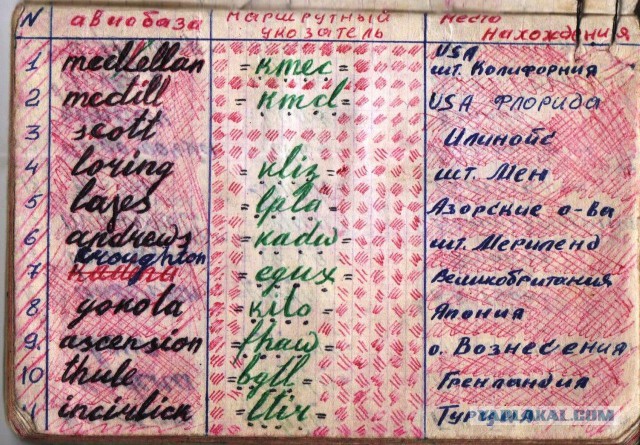 N авиобаза маршрутный указатель место нахождения
1 mecllellan =kmec= USA шт. Колифорния
2 mcdill =kmcl= USA Флорида
3 scott Илинойс
4 loring =kliz= шт. Мен
5 lajes =lpla= Азорские о-ва
6 andrews =kadw= шт. Мериленд
7 croughton =egux= Великобритания
8 yokota =kito= Япония
9. ascension =fhaw= о. Вознесения
10 thule =bgtl= Гренландия
1 incirlick =ltir= Турция
YAPLAKAL.COM